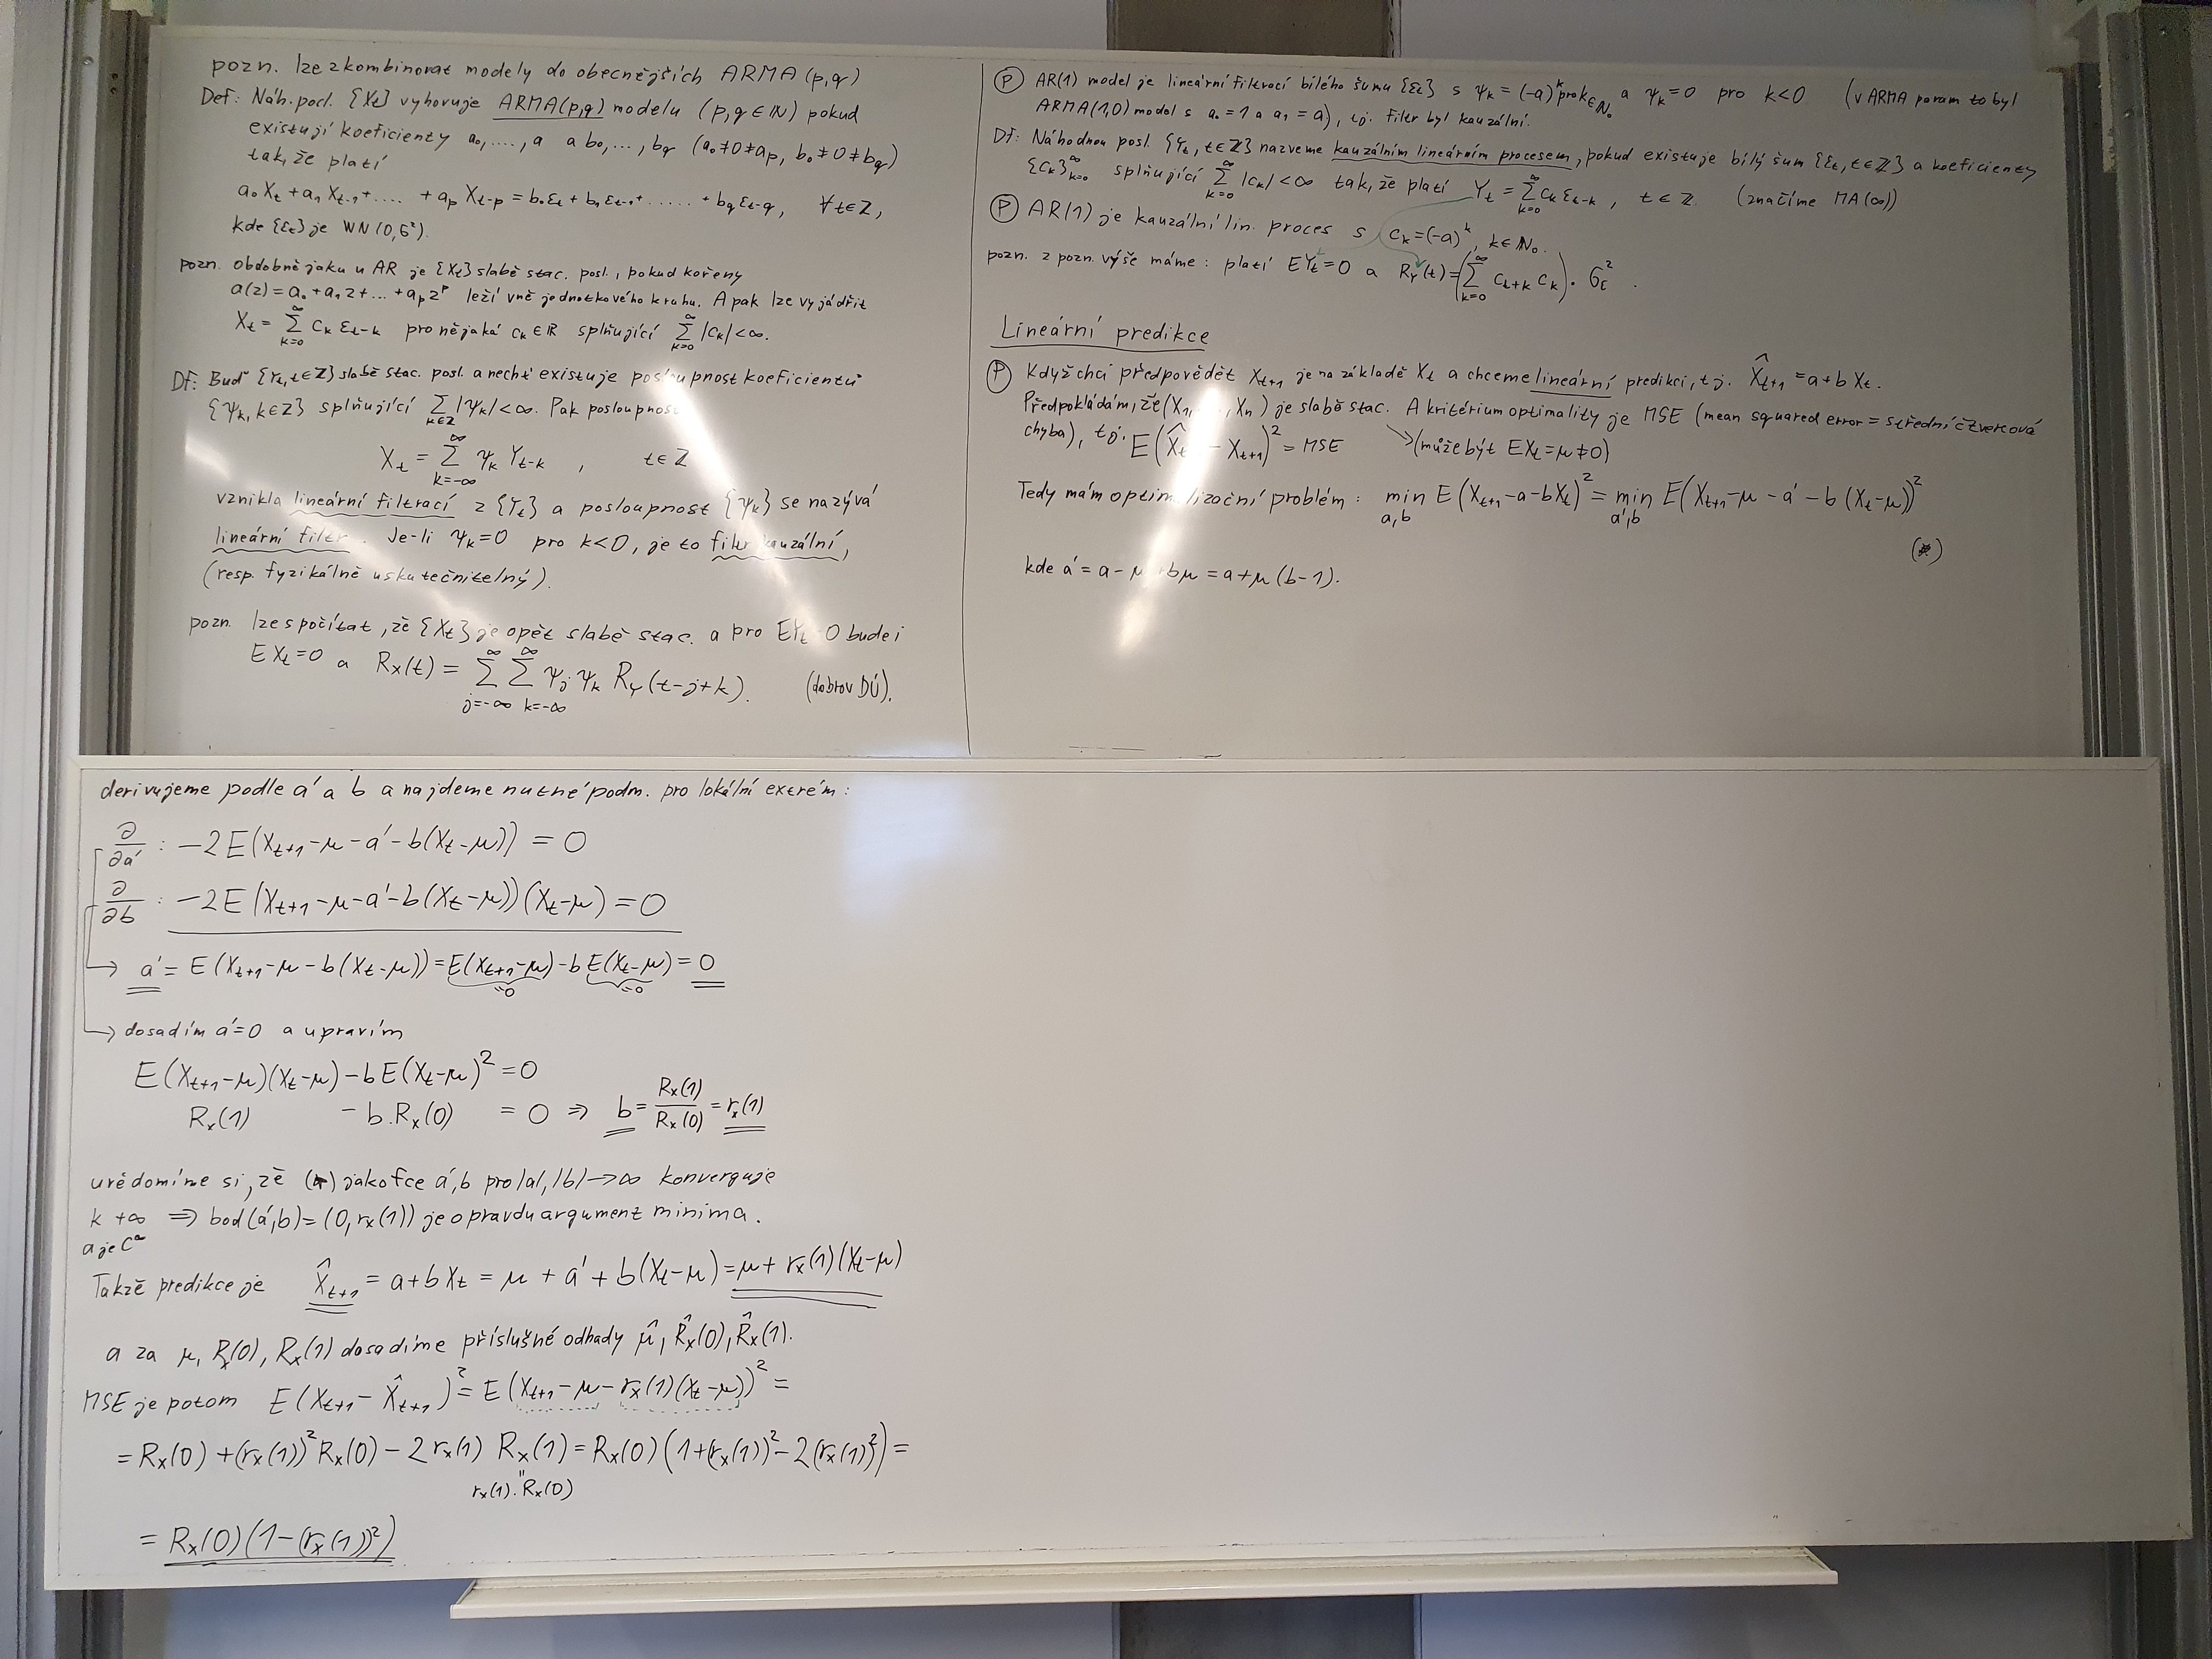 pozn. lze zkombinovat modely do obecnějších ARMA(p,q)
Def: Náh. posl. {Xt} vyhovuje ARMA(p,q) modelu (p,q∈ℕ) pokud
existují koeficienty a₀,....,a a b₀,...,bq (a₀≠0≠ap, b₀≠0≠bq)
tak, že platí
a₀Xt + a₁Xt-1 + .... + apXt-p = b₀εt + b₁εt-1 + ..... + bqεt-q, ∀t∈ℤ,
kde {εt} je WN(0,σ²).
pozn. obdobně jako u AR je {Xt} slabě stac. posl., pokud kořeny
a(z) = a₀+a₁z+...+apz^p leží vně jednotkového kruhu. A pak lze vyjádřit
Xt = ∑_{k=0}^{∞} ck εt-k pro nějaká ck∈ℝ splňující ∑_{k=0}^{∞} |ck|<∞.
Df: Buď {Yt,t∈ℤ} slabě stac. posl. a nechť existuje posloupnost koeficientů
{ψk, k∈ℤ} splňující ∑_{k∈ℤ} |ψk|<∞. Pak posloupnost
Xt = ∑_{k=-∞}^{∞} ψk Yt-k , t∈ℤ
vznikla lineární filtrací z {Yt} a posloupnost {ψk} se nazývá
lineární filtr. Je-li ψk=0 pro k<0, je to filtr kauzální,
(resp. fyzikálně uskutečnitelný).
pozn. lze spočítat, že {Xt} je opět slabě stac. a pro EYt=0 bude i
EXt=0 a Rx(t) = ∑_{j=-∞}^{∞} ∑_{k=-∞}^{∞} ψj ψk RY(t-j+k). (dobrov DÚ).
Ⓟ AR(1) model je lineární filtrací bílého šumu {εt} s ψk = (-a)^k pro k∈ℕ₀ a ψk=0 pro k<0 (v ARMA param to byl
ARMA(1,0) model s a₀=1 a a₁=a), tj. filtr byl kauzální.
Df: Náhodnou posl. {Yt, t∈ℤ} nazveme kauzálním lineárním procesem, pokud existuje bílý šum {εt, t∈ℤ} a koeficienty
{ck}_{k=0}^{∞} splňující ∑_{k=0}^{∞} |ck|<∞ tak, že platí Yt = ∑_{k=0}^{∞} ck εt-k , t∈ℤ. (značíme MA(∞))
Ⓟ AR(1) je kauzální lin. proces s ck=(-a)^k, k∈ℕ₀.
pozn. z pozn. výše máme: platí EYt=0 a RY(t)=(∑_{k=0}^{∞} ct+k ck)·σε² .
Lineární predikce
Ⓟ Když chci předpovědět Xt+1 je na základě Xt a chceme lineární predikci, tj. X̂t+1 = a+bXt.
Předpokládám, že (X1,...,Xn) je slabě stac. A kritérium optimality je MSE (mean squared error = střední čtvercová
chyba), tj. E(X̂t+1 - Xt+1)² = MSE (může být EXt=μ≠0)
Tedy mám optimalizační problém: min_{a,b} E(Xt+1-a-bXt)² = min_{a',b} E(Xt+1-μ-a'-b(Xt-μ))²
(*)
kde a' = a-μ+bμ = a+μ(b-1).
derivujeme podle a' a b a najdeme nutné podm. pro lokální extrém:
∂/∂a' : -2E(Xt+1-μ-a'-b(Xt-μ)) = 0
∂/∂b : -2E(Xt+1-μ-a'-b(Xt-μ))(Xt-μ) = 0
→ a' = E(Xt+1-μ-b(Xt-μ)) = E(Xt+1-μ) - bE(Xt-μ) = 0
=0 =0
→ dosadím a'=0 a upravím
E(Xt+1-μ)(Xt-μ) - bE(Xt-μ)² = 0
Rx(1) - b.Rx(0) = 0 ⇒ b = Rx(1)/Rx(0) = rx(1)
uvědomíme si, že (*) jako fce a',b pro |a|,|b|→∞ konverguje
k +∞ ⇒ bod (a',b) = (0, rx(1)) je opravdu argument minima.
a je C^∞
Takže predikce je X̂t+1 = a+bXt = μ + a' + b(Xt-μ) = μ + rx(1)(Xt-μ)
a za μ, Rx(0), Rx(1) dosadíme příslušné odhady μ̂, R̂x(0), R̂x(1).
MSE je potom E(Xt+1 - X̂t+1)² = E(Xt+1-μ-rx(1)(Xt-μ))² =
= Rx(0) + (rx(1))² Rx(0) - 2 rx(1) Rx(1) = Rx(0)(1+(rx(1))²-2(rx(1))²) =
"
rx(1).Rx(0)
= Rx(0)(1-(rx(1))²)